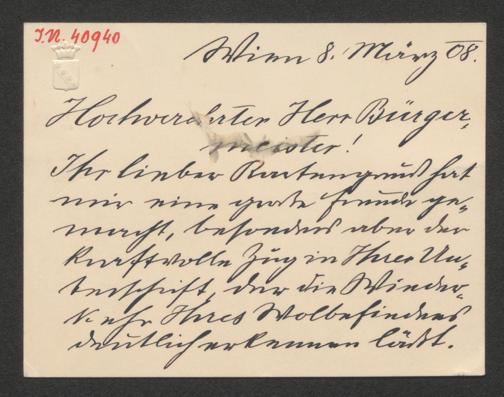 I.N. 40940
Wien 8. März 08.
Hochverehrter Herr Bürger-
meister!
Ihr lieber Kartengruß hat
mir eine große Freude ge-
macht, besonders aber der
kraftvolle Zug in Ihrer Un-
terschrift, der die Wieder-
kehr Ihres Wolbefindens
deutlich erkennen läßt.